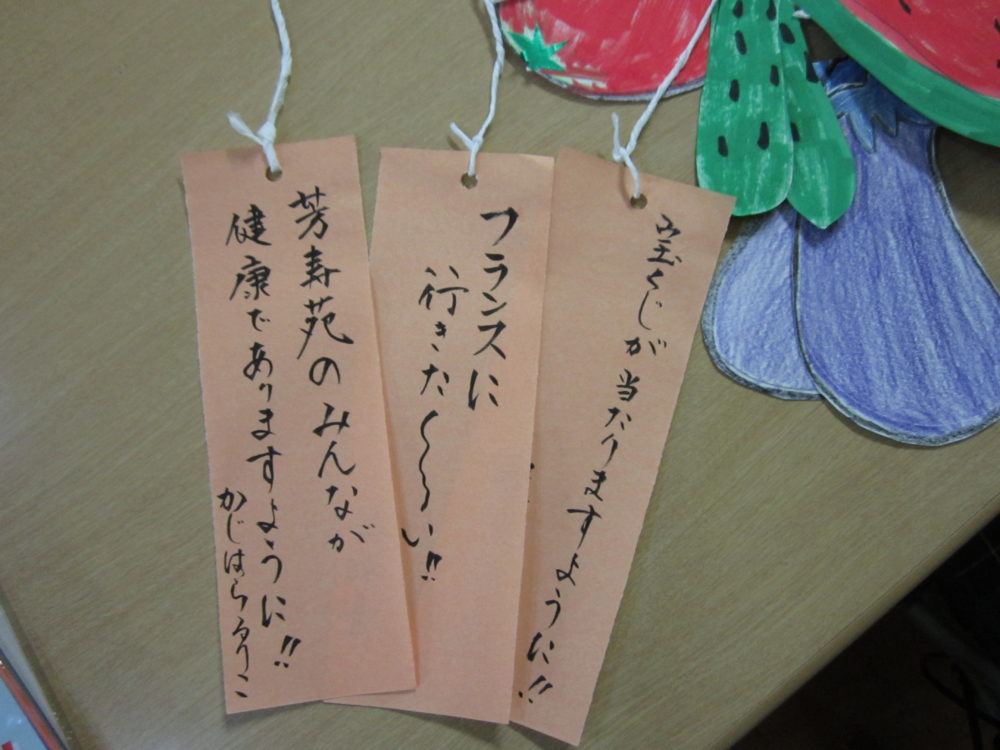 宝くじが当たりますように!!
フランスに
行きた〜〜い!!
芳寿苑のみんなが
健康でありますように!!
かじはらるりこ